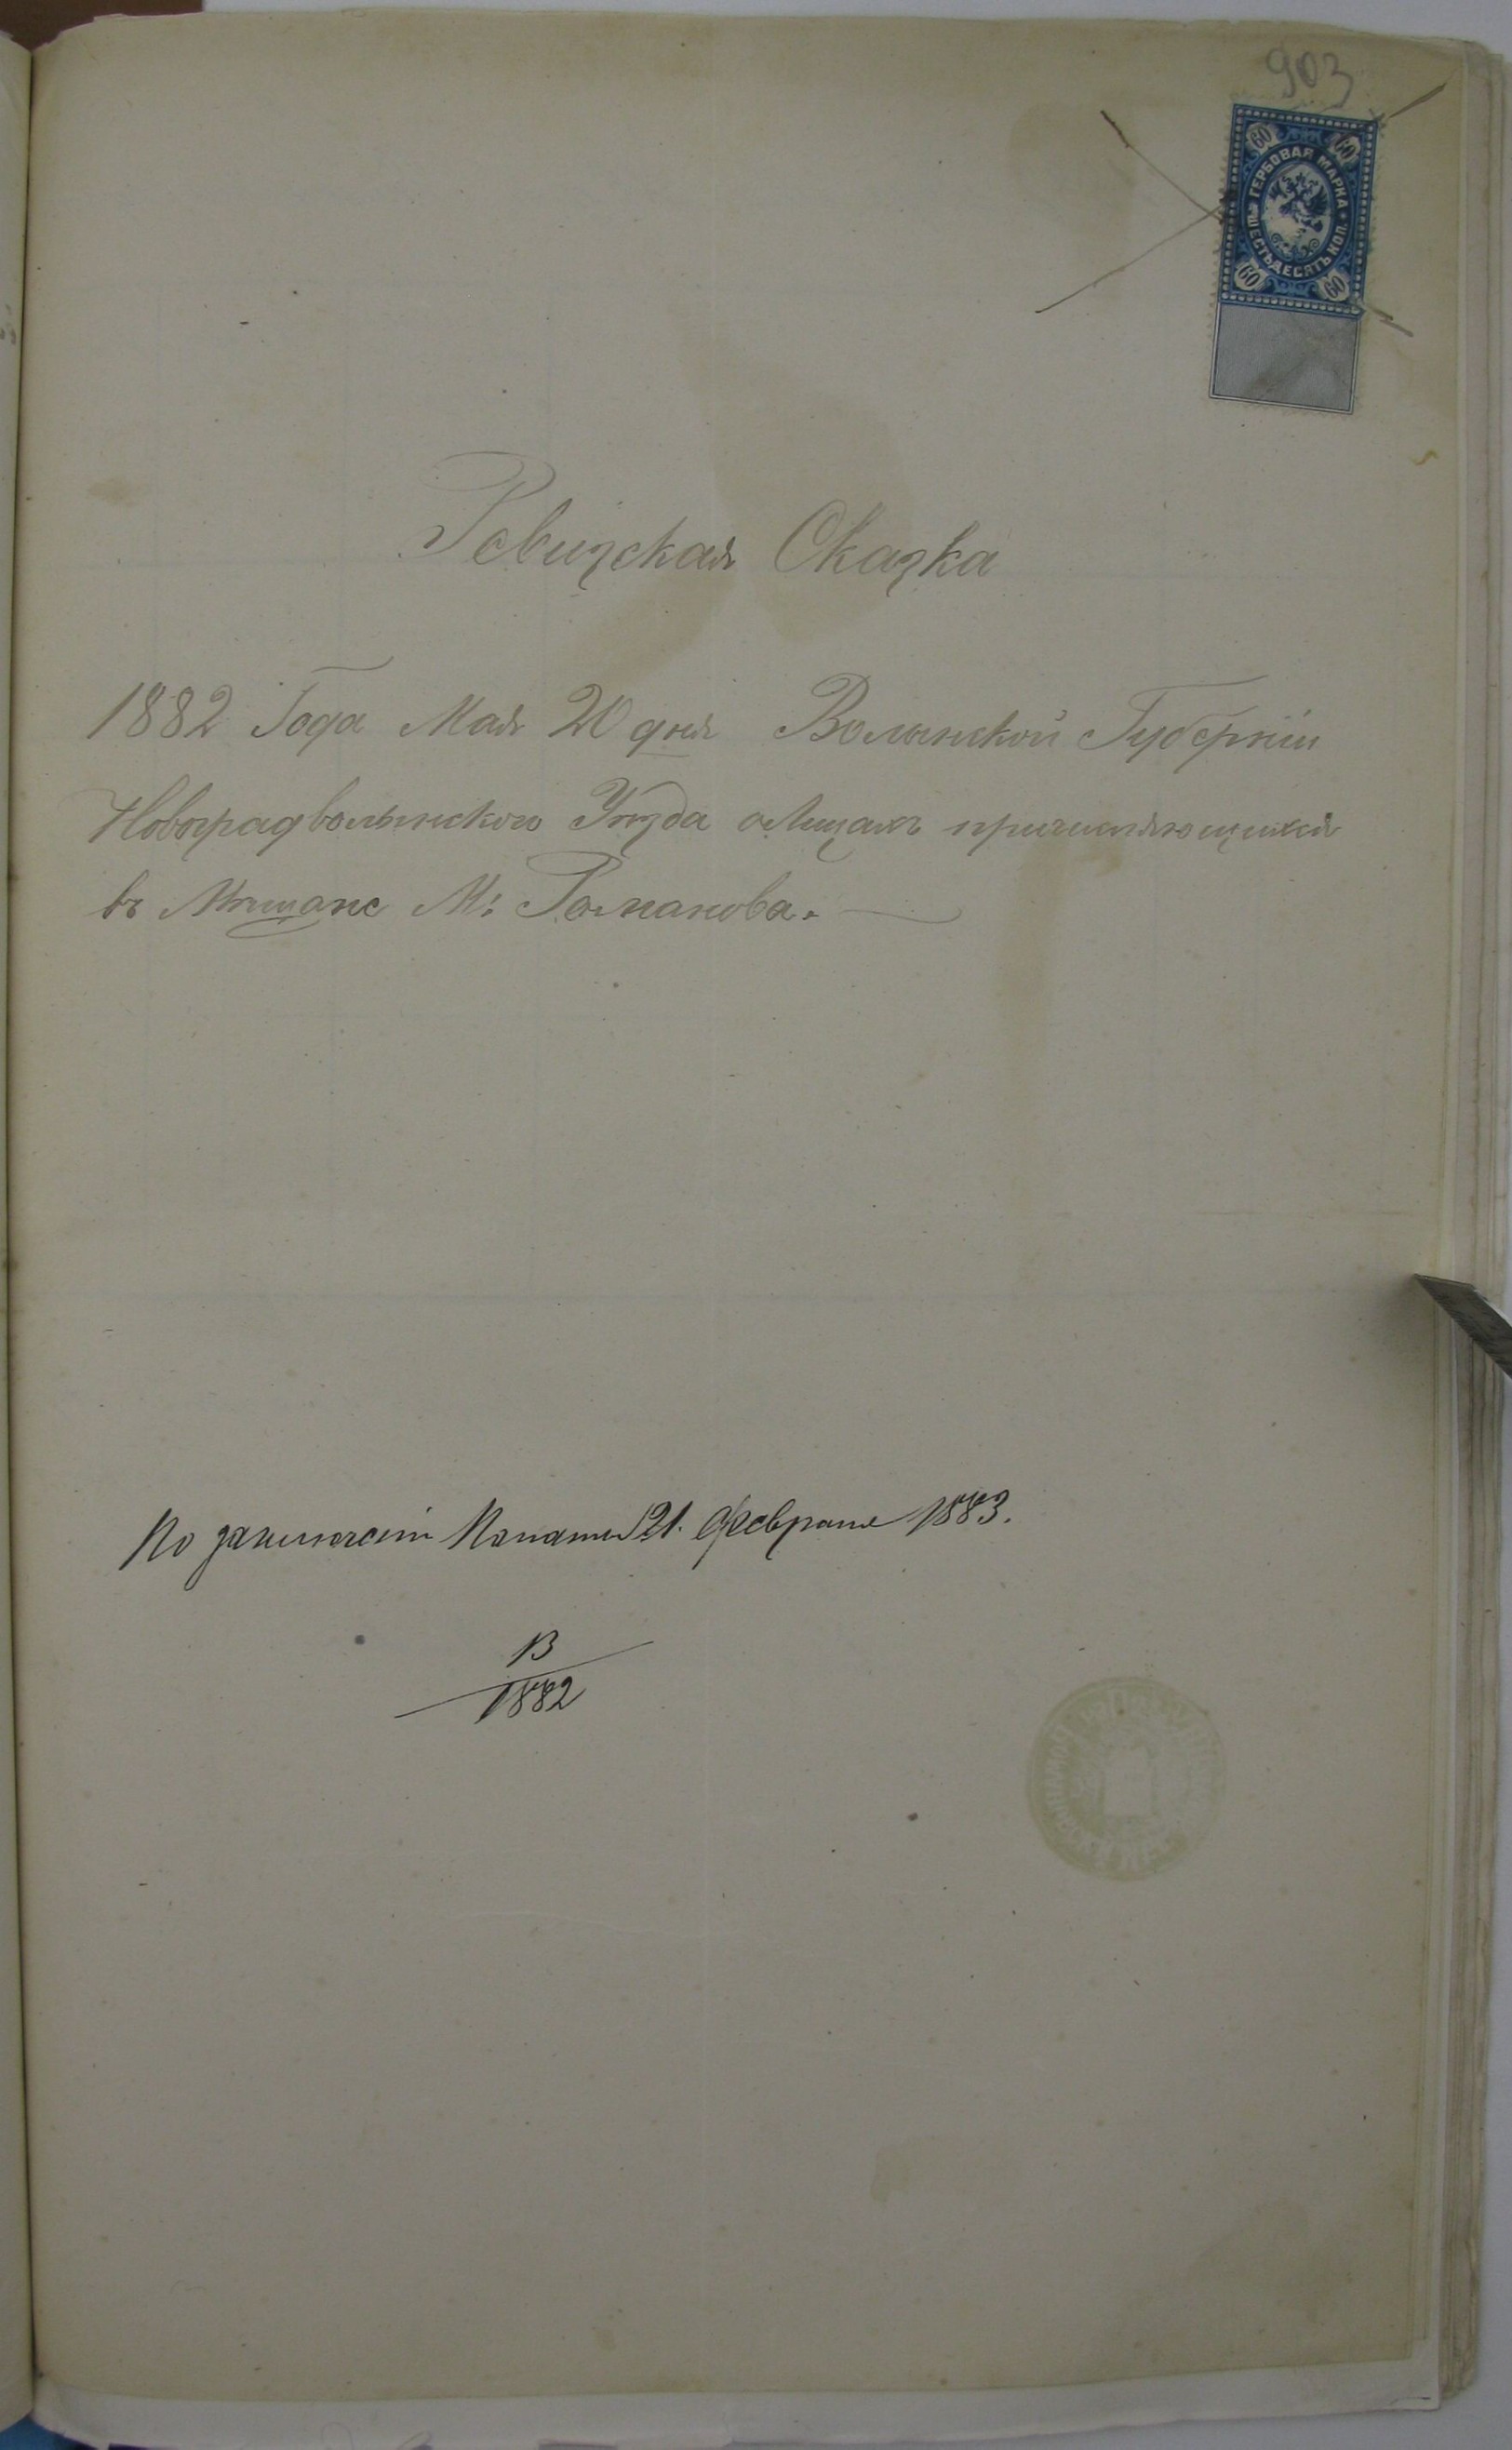 903
60 60
ГЕРБОВАЯ МАРКА
ШЕСТЬДЕСЯТЪ КОП.
60 60
Ревизская Сказка
1882 Года Мая 20 дня Волынской Губерніи
Новоградволынскаго Уѣзда о Лицахъ причисляющихся
въ Мѣщане М: Романова.
По заключенію Палаты 21. Февраля 1883.
13
1882